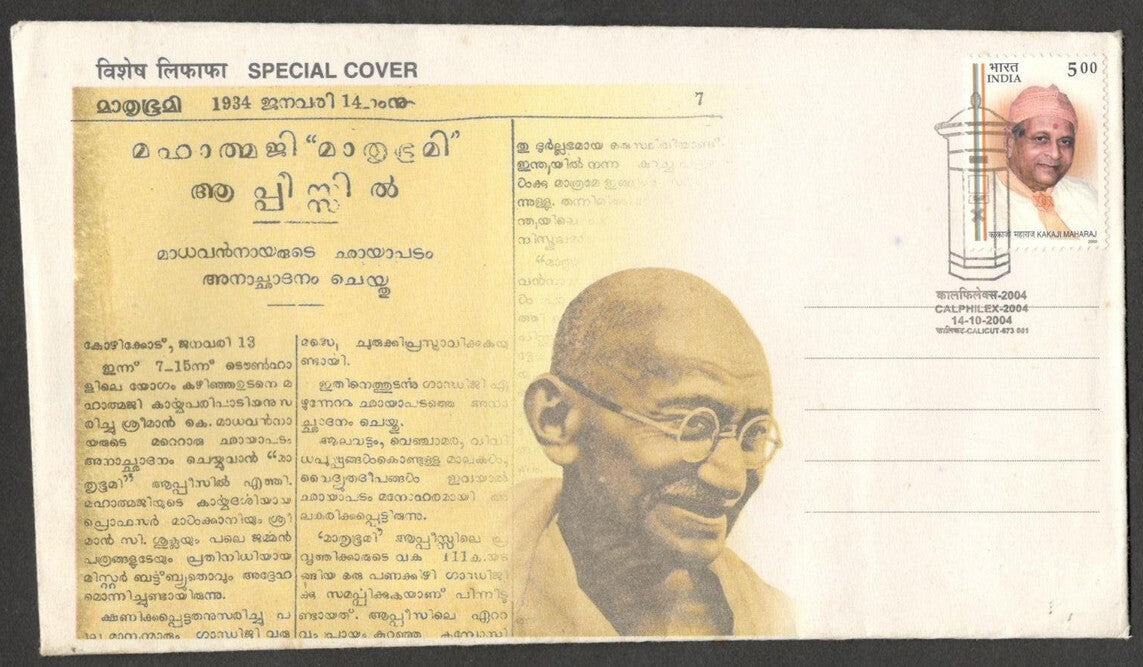 विशेष लिफाफा SPECIAL COVER
മാതൃഭൂമി 1934 ജനവരി 14_ാംനു
7
മഹാത്മജി “മാതൃഭൂമി”
ആപ്പീസ്സിൽ
മാധവൻനായരുടെ ഛായാപടം
അനാച്ഛാദനം ചെയ്തു
കോഴിക്കോട്, ജനവരി 13
ഇന്ന് 7–15ന്ന് ടൌൺഹാ
ളിലെ യോഗം കഴിഞ്ഞഉടനെ മ
ഹാത്മജി കാർയ്യപരിപാടിയനുസ
രിച്ചു ശ്രീമാൻ കെ. മാധവൻനാ
യരുടെ മറെറാരു ഛായാപടം
അനാച്ഛാദനം ചെയ്യുവാൻ “മാ
തൃഭൂമി” ആപ്പീസിൽ എത്തി.
മഹാത്മജിയുടെ കാർയ്യദർശിയായ
പ്രൊഫസർ മാൽക്കാനിയും ശ്രീ
മാൻ സി. ശുക്ലയും പലെ ജർമ്മൻ
പത്രങ്ങളുടേയും പ്രതിനിധിയായ
മിസ്റ്റർ ബട്ട്ബ്യുതൊവും അദ്ദേഹ
മൊന്നിച്ചുണ്ടായിരുന്നു.
ക്ഷണിക്കപ്പെട്ടതനുസരിച്ചു പ
ല മാന്യന്മാരും ഗാന്ധിജി വരു
മസെ, ചുരുക്കിപ്രസ്താവിക്കുകയു
ണ്ടായി.
ഇതിനെത്തുടർന്നു ഗാന്ധിജി എ
ഴുന്നേററു ഛായാപടത്തെ അനാ
ച്ഛാദനം ചെയ്തു.
ആലവട്ടം, വെഞ്ചാമരം, വിവി
ധപുഷ്പങ്ങൾകൊണ്ടുള്ള മാലകൾ,
വൈദ്യുതദീപങ്ങൾ ഇവയാൽ
ഛായാപടം മനോഹരമായി അ
ലങ്കരിക്കപ്പെട്ടിരുന്നു.
“മാതൃഭൂമി” ആപ്പീസിലെ പ്ര
വൃത്തിക്കാരുടെ വക 111ക.യട
ങ്ങിയ ഒരു പണക്കിഴി ഗാന്ധിജി
ക്കു സമർപ്പിക്കുകയാണ് പിന്നീടു
ണ്ടായത്. ആപ്പീസിലെ ഏററ
വും പ്രായം കുറഞ്ഞ കമ്പോസി
തു ദുർല്ലഭമായ ഒരു സ്ഥിതിയാണ്.
ഇന്ത്യയിൽ നന്ന കുറച്ചു
ൾക്കു മാത്രമേ
ന്നുള്ളു.
ന്ത്യയിലെ
“മാതൃ
വൻനാ
भारत
INDIA
5 00
काकाजी महाराज KAKAJI MAHARAJ
2003
कालफिलेक्स-2004
CALPHILEX-2004
14-10-2004
कालिकट-CALICUT-673 001